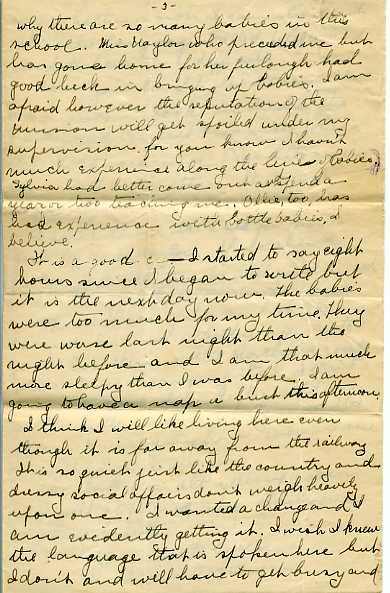 - 3 -
why there are so many babies in this
school. Miss Naylor who preceded me but
has gone home for her furlough had
good luck in bringing up babies. I am
afraid however the reputation of the
mission will get spoiled under my
supervision for you know I haven't
much experience along the line of babies.
Sylvia had better come out and spend a
year or two teaching me. Ollie, too, has
had experience with bottle babies, I
believe.
It is a good — I started to say eight
hours since I began to write but
it is the next day now. The babies
were too much for my time. They
were worse last night than the
night before and I am that much
more sleepy than I was before. I am
going to have a nap a bout this afternoon
I think I will like living here even
though it is far away from the railway
It is so quiet just like the country and
dressy social affairs don't weigh heavily
upon one. I wanted a change and I
am evidently getting it. I wish I knew
the language that is spoken here but
I don't and will have to get busy and